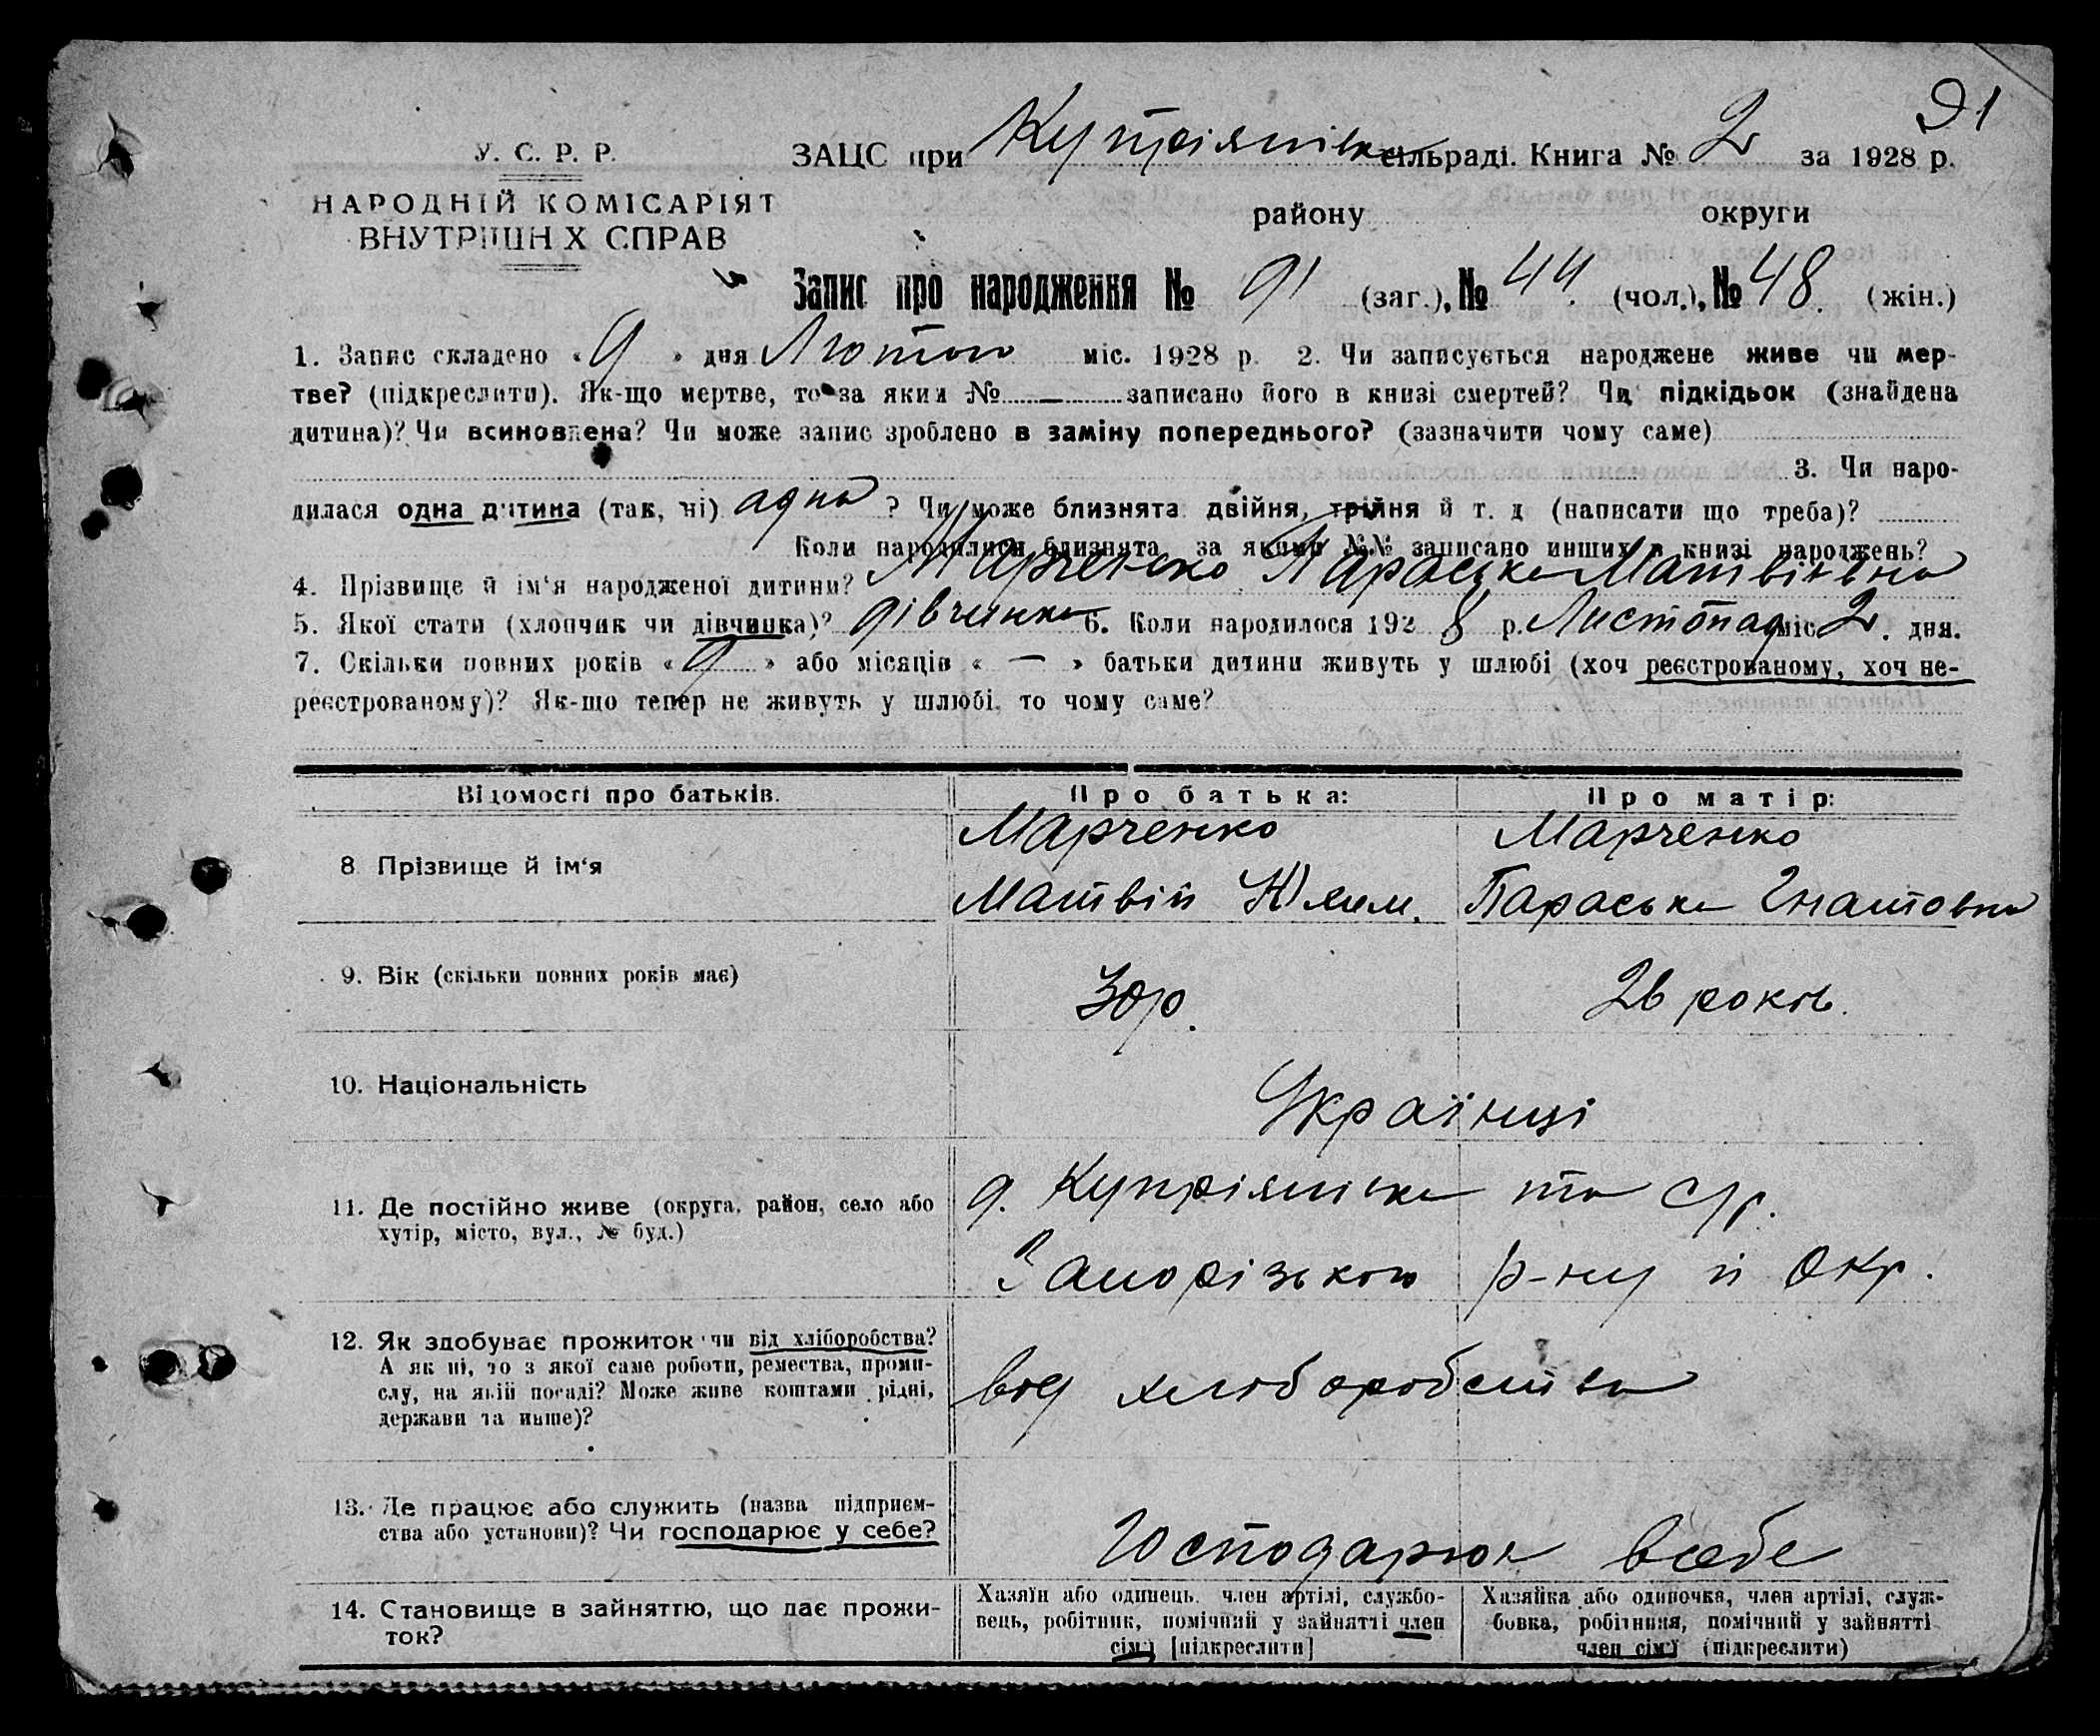 91
У. С. Р. Р.
НАРОДНІЙ КОМІСАРІЯТ
ВНУТРІШН Х СПРАВ
ЗАЦС при Купріянівська сільраді. Книга № 2 за 1928 р.
району округи
Запис про народження № 91 (заг.), № 44. (чол.), № 48. (жін.)
1. Запис складено « 9 » дня Лютого міс. 1928 р. 2. Чи записується народжене живе чи мер-
тве? (підкреслити). Як-що мертве, то за яким № — записано його в книзі смертей? Чи підкідьок (знайдена
дитина)? Чи всиновлена? Чи може запис зроблено в заміну попереднього? (зазначити чому саме)
3. Чи наро-
дилася одна дитина (так, ні) одна ? Чи може близнята двійня, трійня й т. д (написати що треба)?
Коли народилися близнята за якими №№ записано инших в книзі народжень?
4. Прізвище й ім'я народженої дитини? Марченко Параська Матвіївна
5. Якої стати (хлопчик чи дівчинка)? дівчинка 6. Коли народилося 192 8 р. Листопад міс 2. дня.
7. Скільки повних років « 9 » або місяців « — » батьки дитини живуть у шлюбі (хоч реєстрованому, хоч не-
реєстрованому)? Як-що тепер не живуть у шлюбі, то чому саме?
Відомості про батьків. Про батька: Про матір:
8 Прізвище й ім'я
Марченко
Матвій Клим.
Марченко
Параська Гнатовна
9. Вік (скільки повних років має) 30р. 26 років.
10. Національність Українці
11. Де постійно живе (округа, район, село або
хутір, місто, вул., № буд.)
д. Купріянівка та с/р.
Запорізького р-ну й Окр.
12. Як здобуває прожиток чи від хліборобства?
А як ні, то з якої саме роботи, ремества, проми-
слу, на якій посаді? Може живе коштами рідні,
держави та инше)?
від хліборобства
13. Де працює або служить (назва підприєм-
ства або установи)? Чи господарює у себе?
Господарює всебе
14. Становище в зайняттю, що дає прожи-
ток?
Хазяїн або одинець, член артілі, службо-
вець, робітник, помічний у зайнятті член
сім'ї [підкреслити]
Хазяйка або одиночка, член артілі, служ-
бовка, робітниця, помічний у зайнятті
член сім'ї (підкреслити)